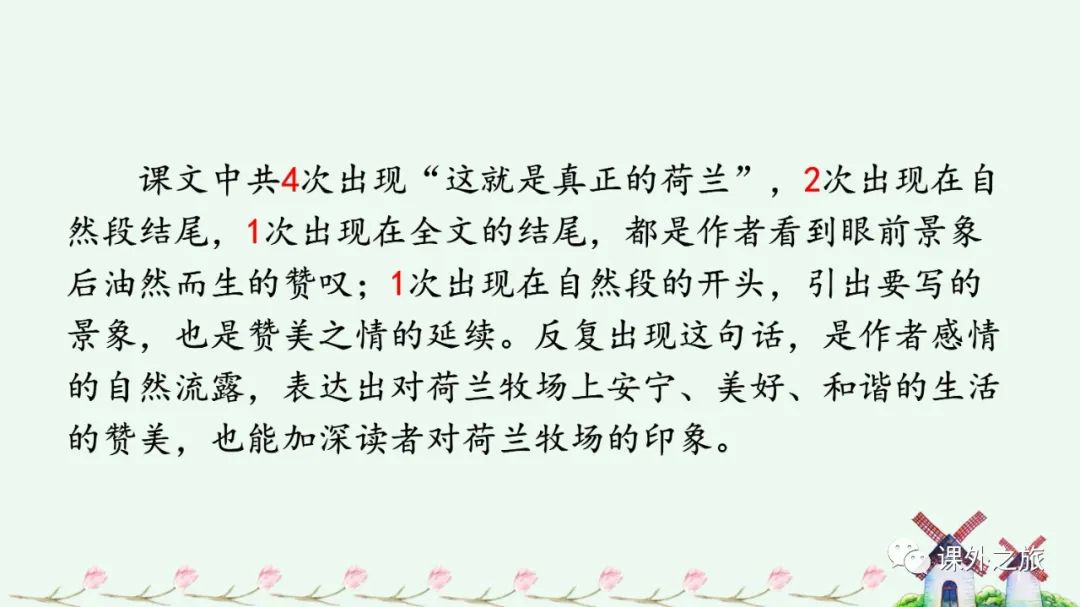 课文中共4次出现“这就是真正的荷兰”，2次出现在自
然段结尾，1次出现在全文的结尾，都是作者看到眼前景象
后油然而生的赞叹；1次出现在自然段的开头，引出要写的
景象，也是赞美之情的延续。反复出现这句话，是作者感情
的自然流露，表达出对荷兰牧场上安宁、美好、和谐的生活
的赞美，也能加深读者对荷兰牧场的印象。
课外之旅